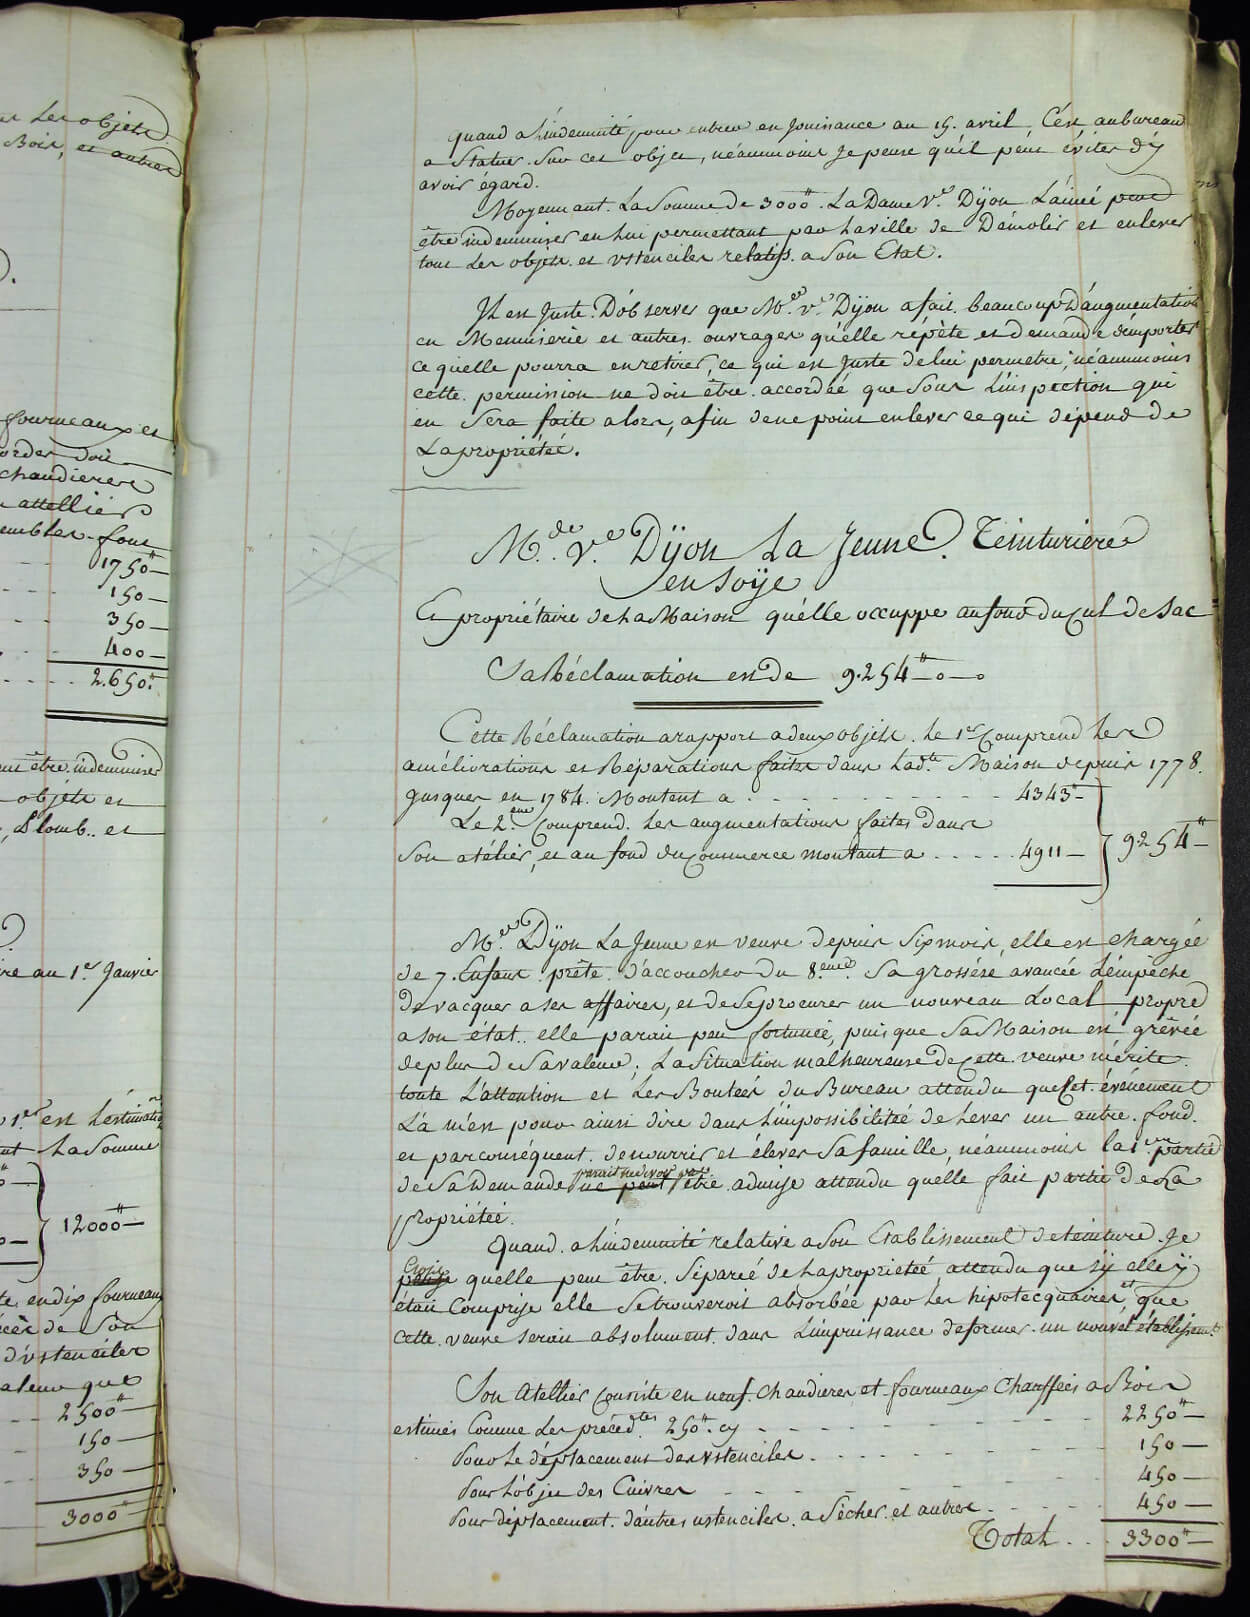 es Les objets
Bois, et autres
fourneaux et
chaudieres
attellier
embles font
1750"—
150—
350—
400—
2.650"
être indemniser
objets et
, Plomb.. et
ire au 1er Janvier
1er est L'éstimation
La Somme
12000"—
te, en dix fourneaux
de Son
d'ustenciles
valeur que
2500"—
150—
350—
3000"—
quand a L'indemnité pour entrer en Jouissance au 15. avril, C'ést au bureau
a Statuer. Sur cet objet, néanmoins Je pense qu'il peut éviter d'ÿ
avoir égard.
Moyennant. La Somme de 3000". La Dame Ve. Dijon L'ainée peut
être indemniser en Lui permettant par La ville de Démolir et enlever
tous Les objets. et Ustenciles relatifs. a Son Etat.
Il est Juste. D'observer que Mde. ve. Dijon a fait. beaucoup D'augmentation
en Menuiserie et autres. ouvrages qu'elle répète et demande d'emporter
ce qu'elle pourra en retirer, ce qui est Juste de lui permetre; néanmoins
cette. permission ne doit être. accordée que Sous L'inspection qui
en Sera faite alors, afin de ne point enlever ce qui dépend de
La propriétée.
Mde. Ve Dijon La Jeune. Teinturiere
en Soÿe
Et propriétaire de La Maison qu'élle occuppe au fond du Cul de Sac
Sa Réclamation est de 9.254"—o—o
Cette Réclamation a rapport a deux objets. Le 1er Comprend Les
améliorations et Réparations faites dans Ladte. Maison depuis 1778.
Jusques en 1784. Montent a . . . . . . . . 4343"
Le 2.eme Comprend. Les augmentations faites dans
Son atélier, et au fond du Commerce montant a . . . . . 4911— } 9.254"—
Mde. Dijon La Jeune est veuve depuis Six mois, elle est chargée
de 7. Enfans prête. d'accoucher du 8.eme. Sa grossésse avancée L'émpêche
De vacquer a ses affaires, et de Se procurer un nouveau Local propre
a son état.. elle parait peu fortunée, puis que Sa Maison est grévée
de plus de Sa valeur; La Situation malheureuse de Cette veuve mérite.
toute L'attention et Les Bontées du Bureau attendu que Cet événement
La mét pour ainsi dire dans L'impossibilitée de Lever un autre. fond.
et par conséquent. de nourrir et élever Sa famille, néanmoins la 1ere partie
de Sa demande ne peut parait ne devoir pas être admise attendu qu'élle fait partie De La
propriétée.
Quand. a L'indemnité relative a Son Etablissement de teinture. Je
pense Crois quelle peut être. Séparée de La proprietée attendu que si elle ÿ
était Comprise elle Se trouveroit absorbée par Les hipotecquaires et que
Cette. veuve seroit absolument. dans L'impuissance de former. un nouvel établissemt.
Son Atellier Consiste en neuf. chaudieres et fourneaux Chauffées a Bois
estimés Comme Les précédtes. 250". cy — — — — — — 2250"—
Pour Le déplacement des Ustenciles. . . . . 150—
Pour L'objet des Cuivres — — — — — 450—
Pour déplacement. d'autres ustenciles. a Sécher. et autres. — — — 450—
Total . . . 3300"—